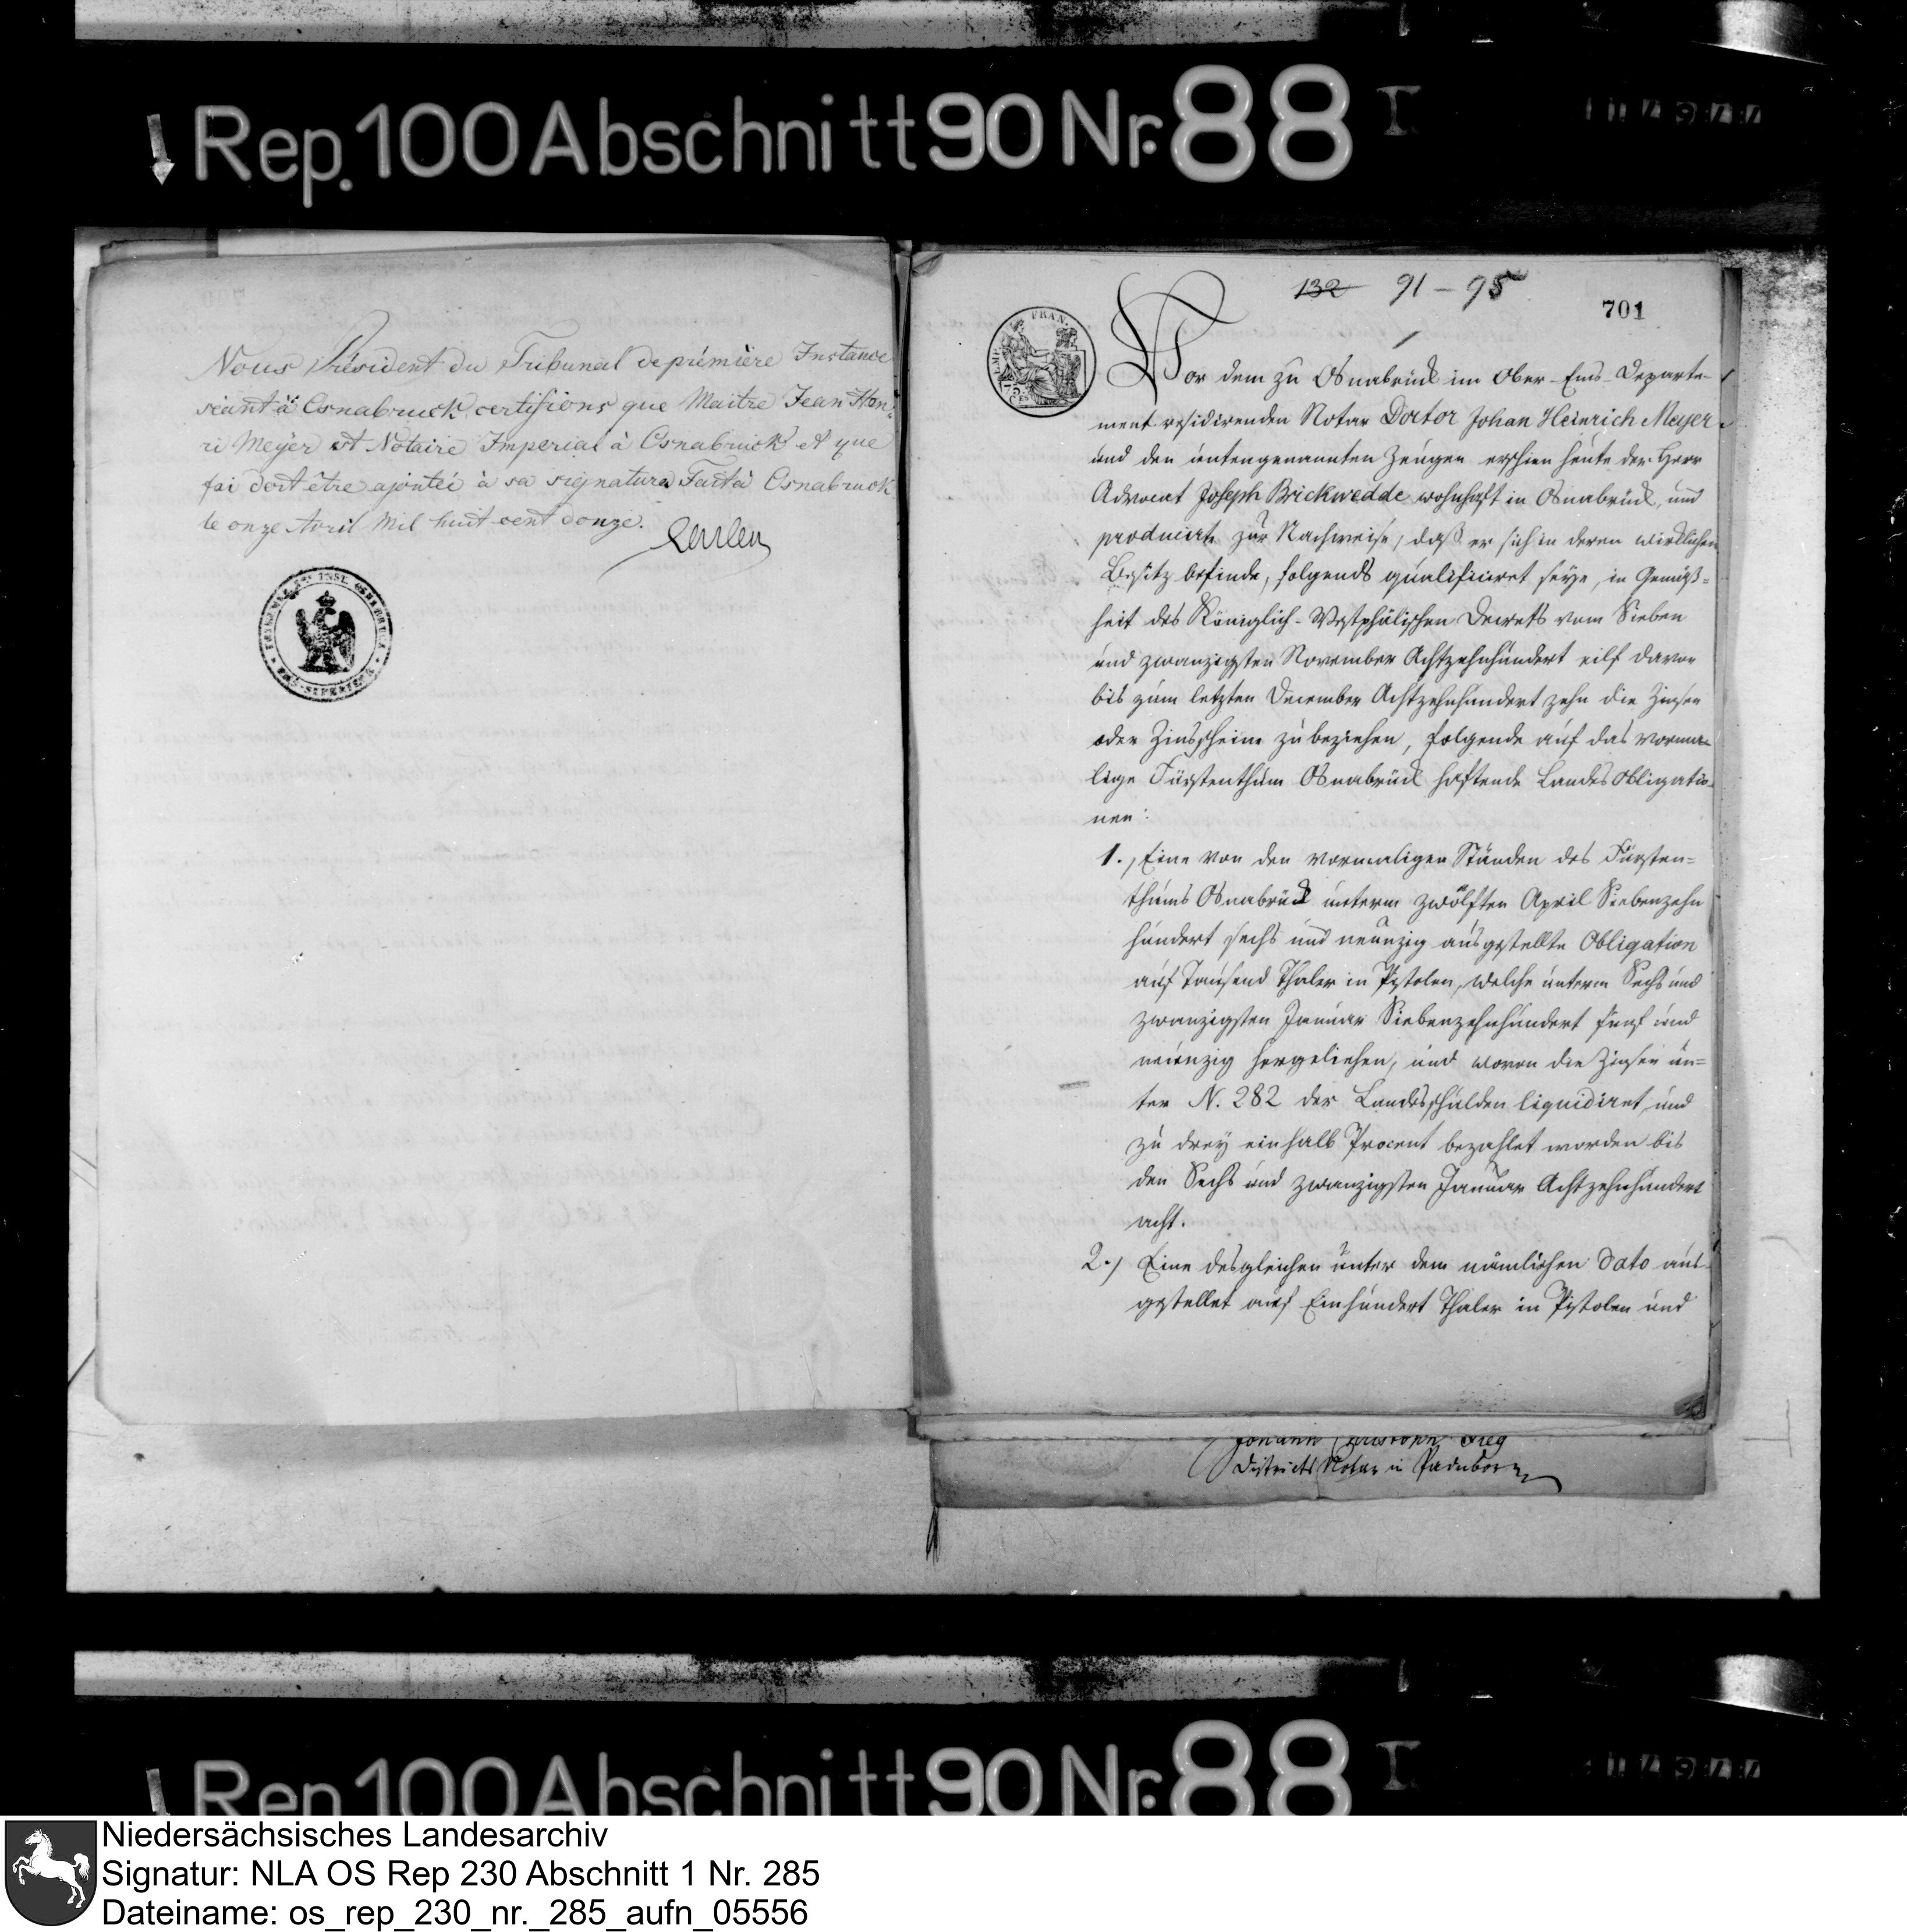 Rep. 100 Abschnitt 90 Nr. 88 I
Nous Président du Tribunal de prémière Instance
séant à Osnabruck, certifions que Maitre Jean Hen-
ri Meyer est Notaire Imperial à Osnabruck et que
foi doit être ajoutéi à sa signatura Fait à Osnabruck
le onze Avril Mil huit cent douze.
132 91-95
701
EMP. FRAN.
Vor dem zu Osnabrück im Ober-Ems-Departe-
ment residirenden Notar Doctor Johan Heinrich Meyer
und den untengenannten Zeugen erschien heute der Herr
Advocat Joseph Brickwedde wohnhaft in Osnabrück, und
producirte zur Nachweise, daß er sich in deren wirklichen
Besitz befinde, folgends qualificiret seye, in Gemäß-
heit des Königlich-Westphälischen Decrets vom Sieben
und zwanzigsten November Achtzehnhundert eilf davon
bis zum letzten December Achtzehnhundert zehn die Zinsen
oder Zinsscheine zu beziehen, folgende auf das vorma-
lige Fürstenthum Osnabrück haftende Landes Obligatio-
nen:
1., Eine von den vormaligen Ständen des Fürsten=
thums Osnabrück unterm zwölften April Siebenzehn
hundert sechs und neunzig ausgestellte Obligation
auf Tausend Thaler in Pistolen, welche unterm Sechs und
zwanzigsten Januar Siebenzehnhundert fünf und
neunzig hergeliehen, und wovon die Zinsen un=
ter N. 282 der Landesschulden liquidiret und
zu drey einhalb Procent bezahlet worden bis
den Sechs und zwanzigsten Januar Achtzehnhundert
acht.
2.) Eine desgleichen unter dem nämlichen Dato aus-
gestellet auf Einhundert Thaler in Pistolen und
Johann Christoph
Districts Notar in Paderborn
Rep 100 Abschnitt 90 Nr. 88 I
Niedersächsisches Landesarchiv
Signatur: NLA OS Rep 230 Abschnitt 1 Nr. 285
Dateiname: os_rep_230_nr._285_aufn_05556